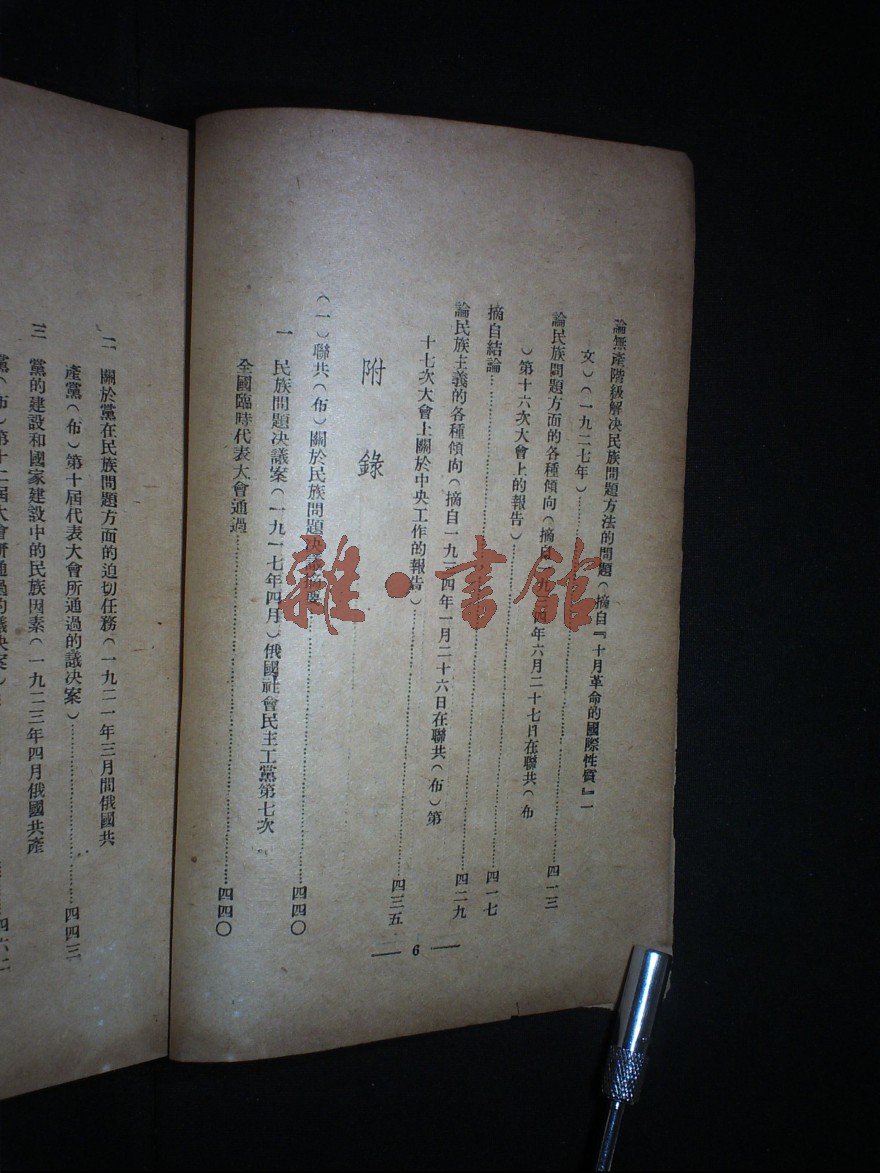 論無產階級解決民族問題方法的問題(摘自『十月革命的國際性質』一
文)(一九二七年)……四一三
論民族問題方面的各種傾向(摘自一九三〇年六月二十七日在聯共(布
)第十六次大會上的報告)……四一七
摘自結論……四二九
論民族主義的各種傾向(摘自一九三四年一月二十六日在聯共(布)第
十七次大會上關於中央工作的報告)……四三五
附錄
(一)聯共(布)關於民族問題決議摘要……四四〇
一 民族問題決議案(一九一七年四月)俄國社會民主工黨第七次
全國臨時代表大會通過……四四〇
6
二 關於黨在民族問題方面的迫切任務(一九二一年三月間俄國共
產黨(布)第十屆代表大會所通過的議決案)……四四三
三 黨的建設和國家建設中的民族因素(一九二三年四月俄國共產
黨(布)第十二屆大會所通過的議決案)
雜·書館